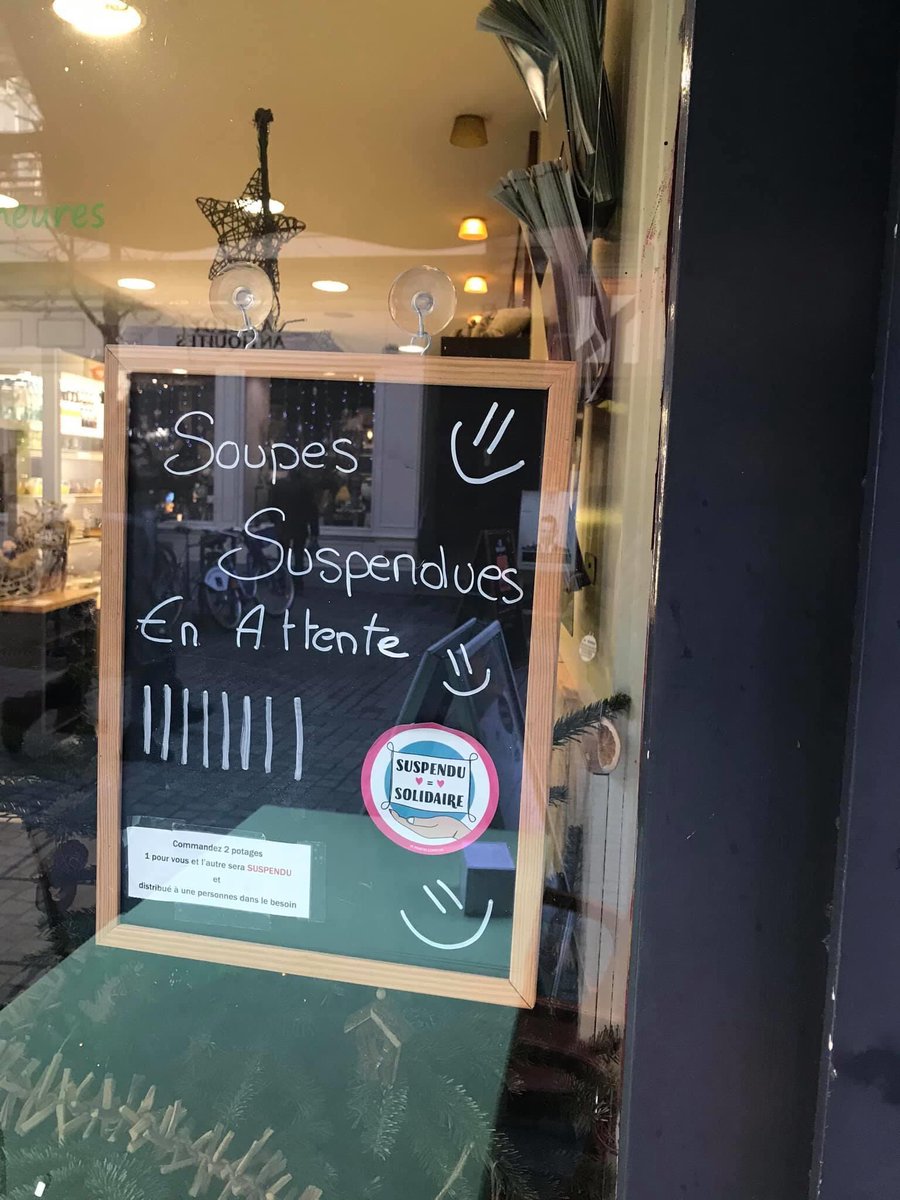 heures
ANTIQUITES
Soupes
Suspendues
En Attente
SUSPENDU
=
SOLIDAIRE
Commandez 2 potages
1 pour vous et l'autre sera SUSPENDU
et
distribué à une personnes dans le besoin